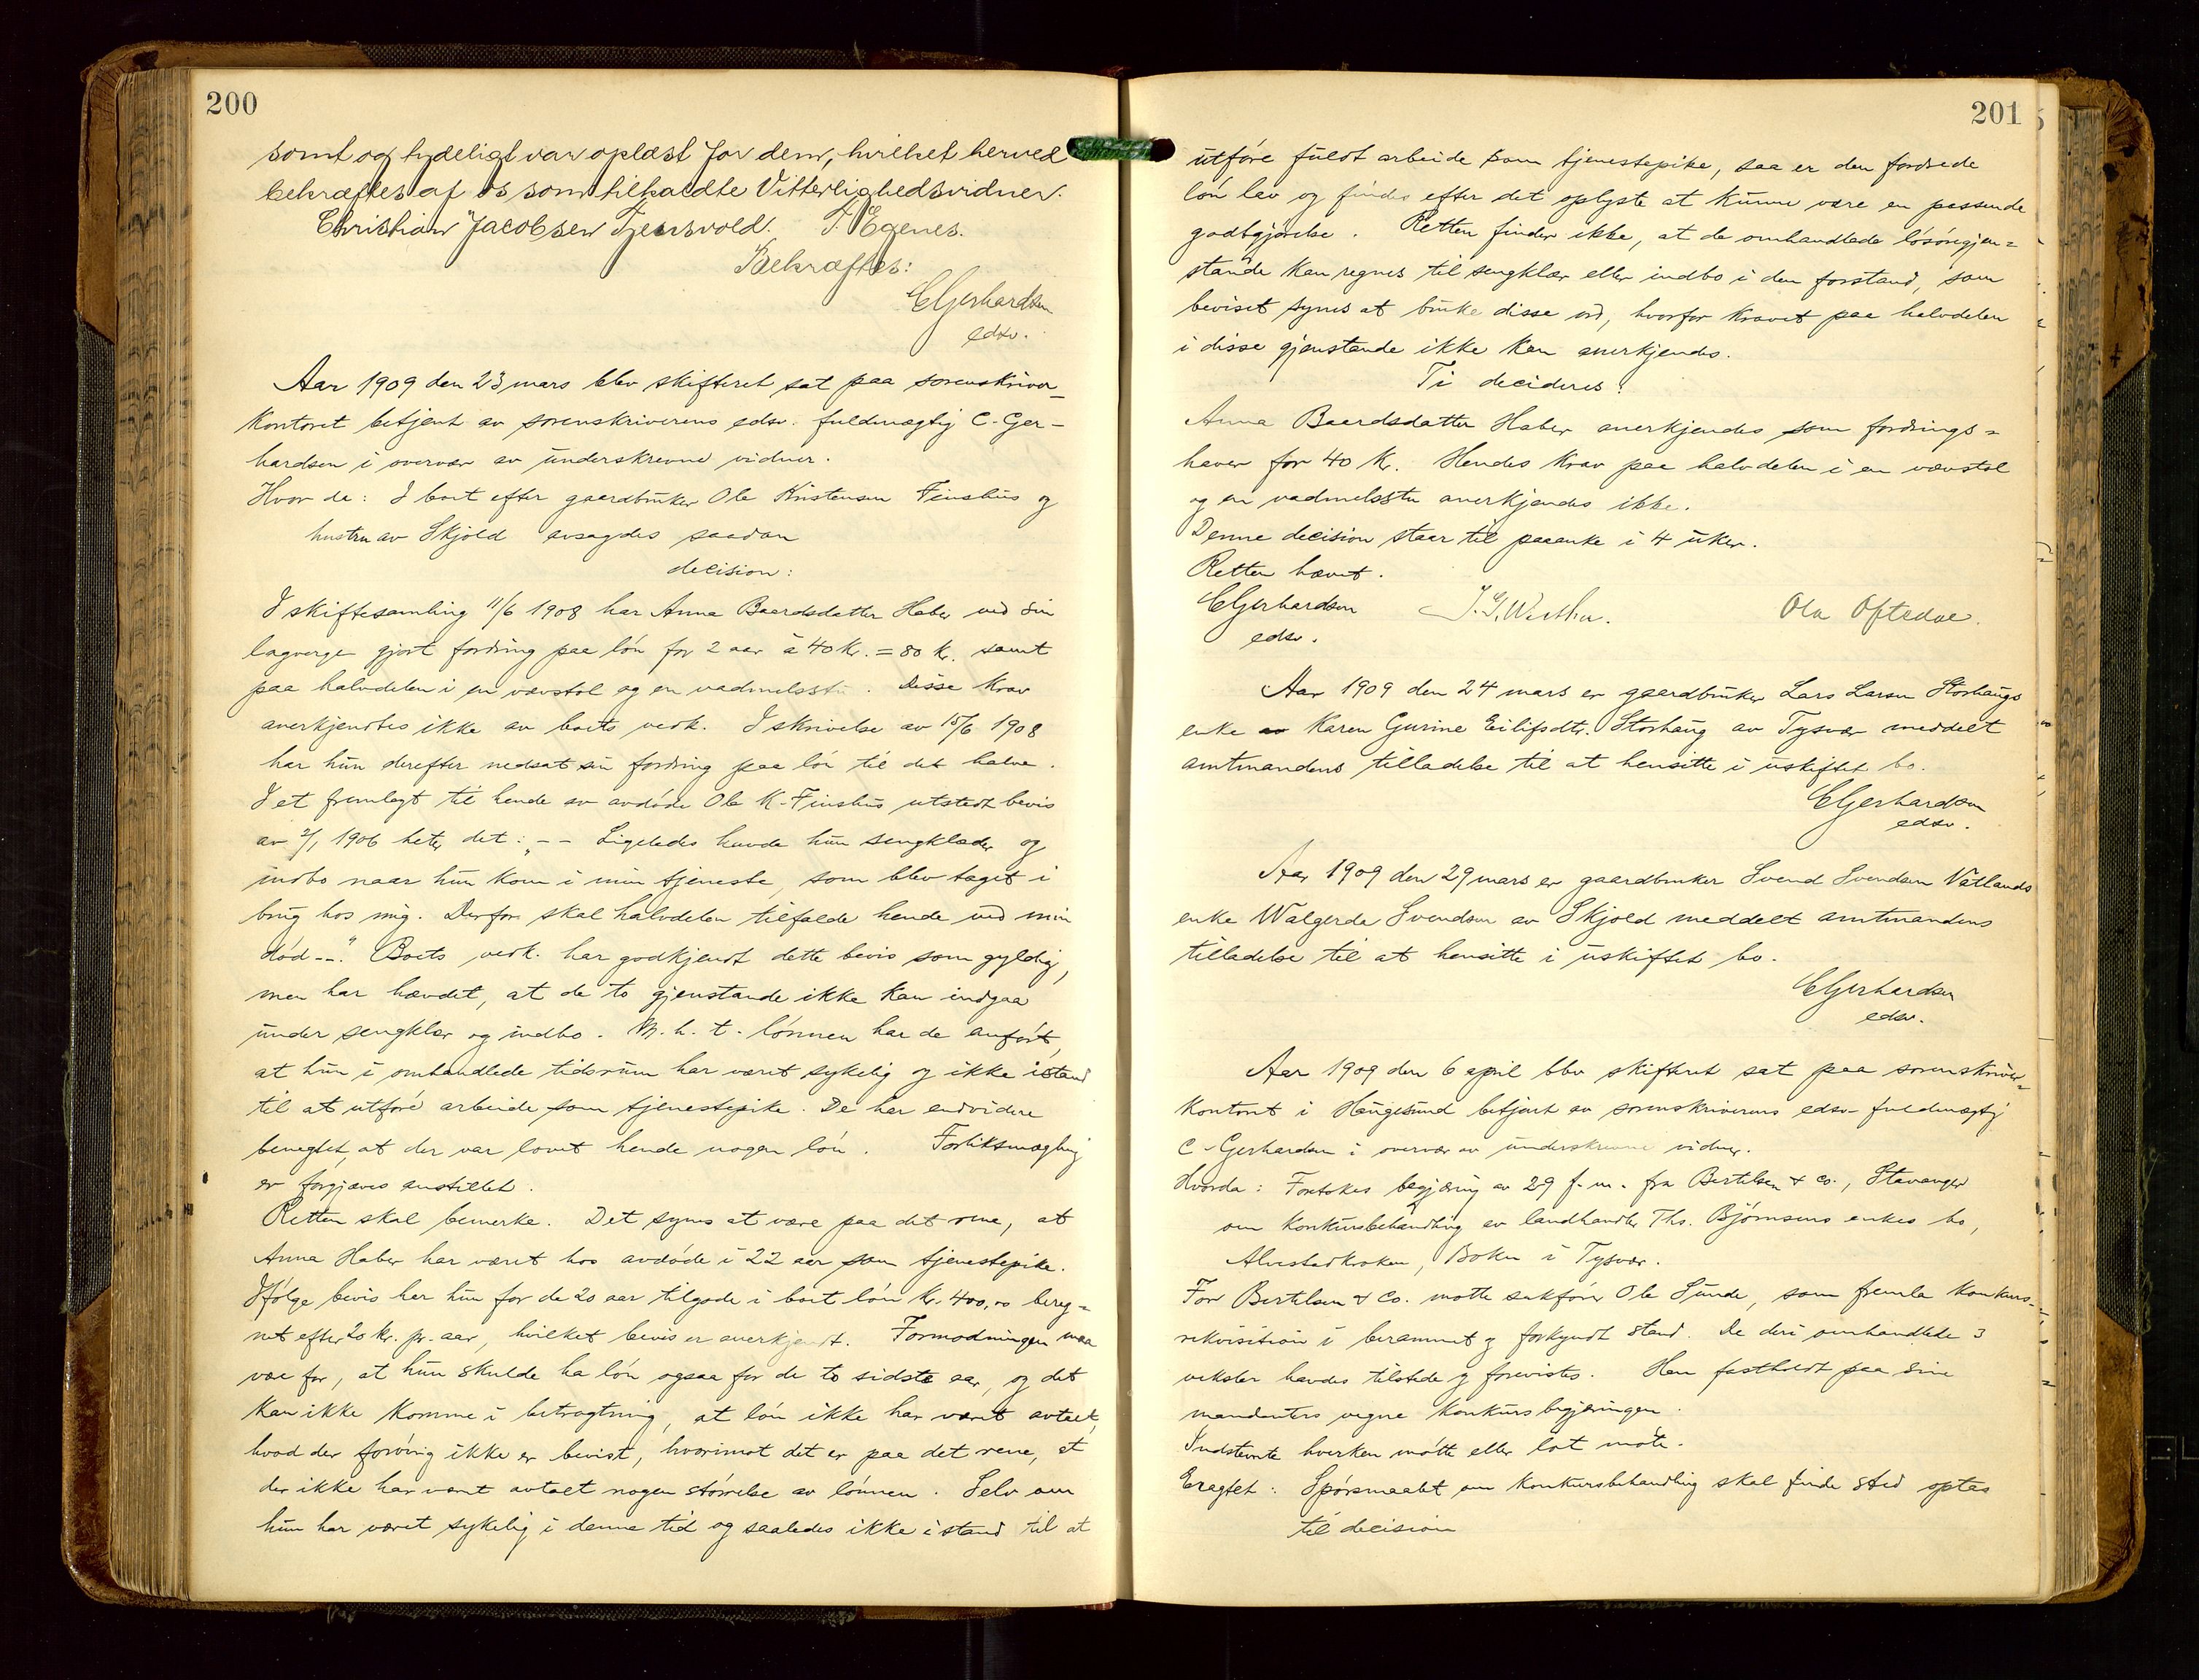 200
somt og tydeligt var oplæst for dem, hvilket herved
bekræftes af os som tilkaldte Vitterlighedsvidner.
Christian Jacobsen T. Egenes.
Bekræftes:
CGerhardsen
edsv.
Aar 1909 den 23 mars blev skifteret sat paa sorenskriver-
kontoret betjent av sorenskriverens edsv. fuldmægtig C. Ger-
hardsen i overvær av underskrevne vidner.
Hvor da: I boet efter gaardbruker Ole Kristensen Finshus og
hustru av Skjold avsagdes saadan
decision:
I skiftesamling 11/6 1908 har Anna Baardsdatter Haber ved sin
lagverge gjort fordring paa løn for 2 aar à 40 Kr. = 80 Kr. samt
paa halvdelen i en vævstol og en vadmelsstu. Disse krav
anerkjendtes ikke av boets vedk. I skrivelse av 15/6 1908
har hun derefter nedsat sin fordring paa løn til det halve.
I et fremlagt til hende av avdøde Ole K. Finshus utstedt bevis
av 2/1 1906 heter det: „-- Ligeledes havde hun sengklæder og
indbo naar hun kom i min tjeneste, som blev taget i
brug hos mig. Derfor skal halvdelen tilfalde hende ved min
død --." Boets vedk. har godkjendt dette bevis som gyldig,
men har hævdet, at de to gjenstande ikke kan indgaa
under sengklær og indbo. M. h. t. lønnen har de anført,
at hun i omhandlede tidsrum har været sykelig og ikke istand
til at utføre arbeide som tjenestepike. De har endvidere
benegtet, at der var lovet hende nogen løn. Forliksmægling
er forgjæves anstillet.
Retten skal bemerke. Det synes at være paa det rene, at
Anna Haber har været hos avdøde i 22 aar som tjenestepike.
Ifølge bevis har hun for de 20 aar tilgode i boet løn Kr. 400,00 bereg-
net efter 20 kr. pr. aar, hvilket bevis er anerkjendt. Formodningen maa
være for, at hun skulde ha løn ogsaa for de to sidste aar, og det
kan ikke komme i betragtning, at løn ikke har været avtalt,
hvad der forøvrig ikke er bevist, hvorimot det er paa det rene, at
der ikke har været avtalt nogen størrelse av lønnen. Selv om
hun har været sykelig i denne tid og saaledes ikke istand til at
201
utføre fuldt arbeide som tjenestepike, saa er den fordrede
løn lav og findes efter det oplyste at kunne være en passende
godtgjørelse. Retten finder ikke, at de omhandlede løsøregjen=
stande kan regnes til sengklær eller indbo i den forstand, som
beviset synes at bruke disse ord, hvorfor kravet paa halvdelen
i disse gjenstande ikke kan anerkjendes.
Ti decideres:
Anna Baardsdatter Haber anerkjendes som fordrings=
haver for 40 Kr. Hendes krav paa halvdelen i en vævstol
og en vadmelsstu anerkjendes ikke.
Denne decision staar til paaanke i 4 uker.
Retten hævet.
CGerhardsen Ola Oftedae.
edsv.
Aar 1909 den 24 mars er gaardbruker Lars Larsen Storhaugs
enke Karen Gurine Eilifsdtr. Storhaug av Tysvær meddelt
amtmandens tilladelse til at hensitte i uskiftet bo.
CGerhardsen
edsv.
Aar 1909 den 29 mars er gaardbruker Svend Svendsen Vatlands
enke Walgerda Svendsen av Skjold meddelt amtmandens
tilladelse til at hensitte i uskiftet bo.
CGerhardsen
edsv.
Aar 1909 den 6 april blev skifteret sat paa sorenskriver=
kontoret i Haugesund betjent av sorenskriverens edsv. fuldmægtig
C. Gerhardsen i overvær av underskrevne vidner.
Hvorda: Foretokes begjæring av 29 f. m. fra Bertelsen & Co., Stavanger
om konkursbehandling av landhandler Ths. Bjørnsens enkes bo,
Alvestadkroken, Bokn i Tysvær.
For Bertelsen & Co. møtte sakfører Ole Sunde, som fremla konkurs-
rekvisition i berammet og forkyndt stand. De deri omhandlede 3
veksler havdes tilstede og forevistes. Han fastholdt paa sine
mandanters vegne konkursbegjæringen.
Indstevnte hverken møtte eller lot møte.
Eragtet: Spørsmaalet om konkursbehandling skal finde sted optas
til decision